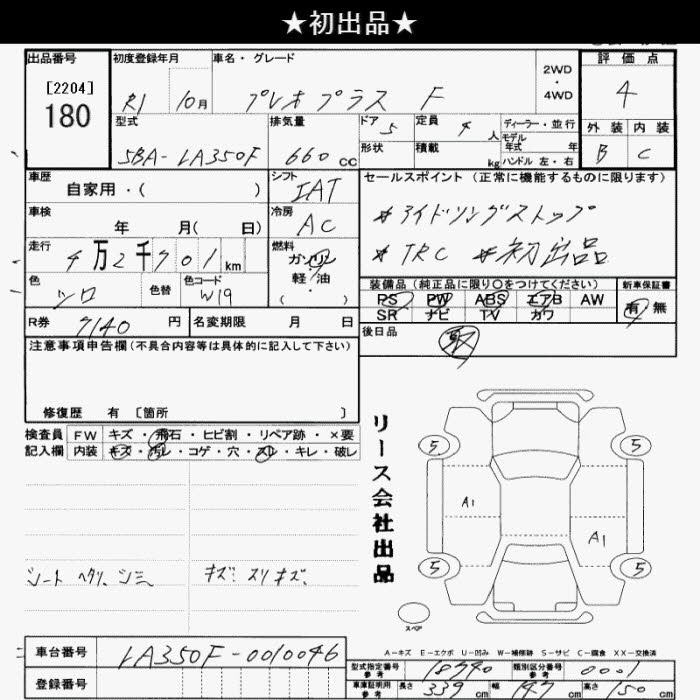 ★初出品★
出品番号 初度登録年月 車名・グレード 2WD・4WD 評価点
[2204]
180 R1 10月 プレオプラス F 4
型式 排気量 ドア 5 定員 4人 ディーラー・並行 外装 内装
5BA-LA350F 660cc 形状 積載 kg モデル年式 年 ハンドル 左・右 B C
車歴 自家用・( ) シフト IAT セールスポイント (正常に機能するものに限ります)
車検 年 月( 日) 冷房 AC *アイドリングストップ
走行 4万2千701km 燃料 ガソリン 軽油 ・( ) *TRC *初出品
色 シロ 色替 色コード W19 装備品(純正品に限り○をつけてください) 新車保証書
PS PW ABS エアB AW 有・無
R券 7140円 名変期限 月 日 SR ナビ TV カワ
注意事項申告欄(不具合内容等は具体的に記入して下さい) 後日品 取
修復歴 有 〔箇所 〕
検査員 FW キズ・飛石・ヒビ割・リペア跡・×要
記入欄 内装 キズ・汚レ・コゲ・穴・スレ・キレ・破レ
リース会社出品
5 5
A1
A1
シート ヘタリ、シミ キズ スリキズ、
5 5
スペア
A-キズ E-エクボ U-凹み W-補修跡 S-サビ C-腐食 XX-交換済
車台番号 LA350F-0010046 型式指定番号 参考 18740 類別区分番号 参考 0001
登録番号 車庫証明用 参考 長さ 339cm 幅 147cm 高さ 150cm